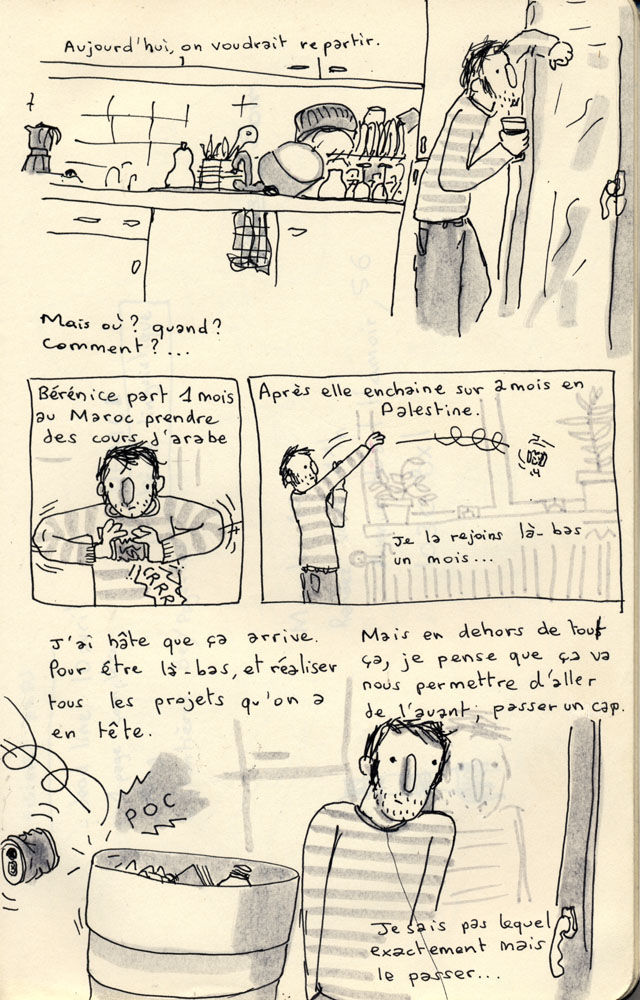 Aujourd'hui, on voudrait repartir.
Mais où? quand?
Comment?...
Bérénice part 1 mois
au Maroc prendre
des cours d'arabe
CRRRR
Après elle enchaine sur 2 mois en
Palestine.
Je la rejoins là-bas
un mois...
J'ai hâte que ça arrive.
Pour être là-bas, et réaliser
tous les projets qu'on a
en tête.
Mais en dehors de tout
ça, je pense que ça va
nous permettre d'aller
de l'avant, passer un cap.
POC
Je sais pas lequel
exactement mais
le passer...